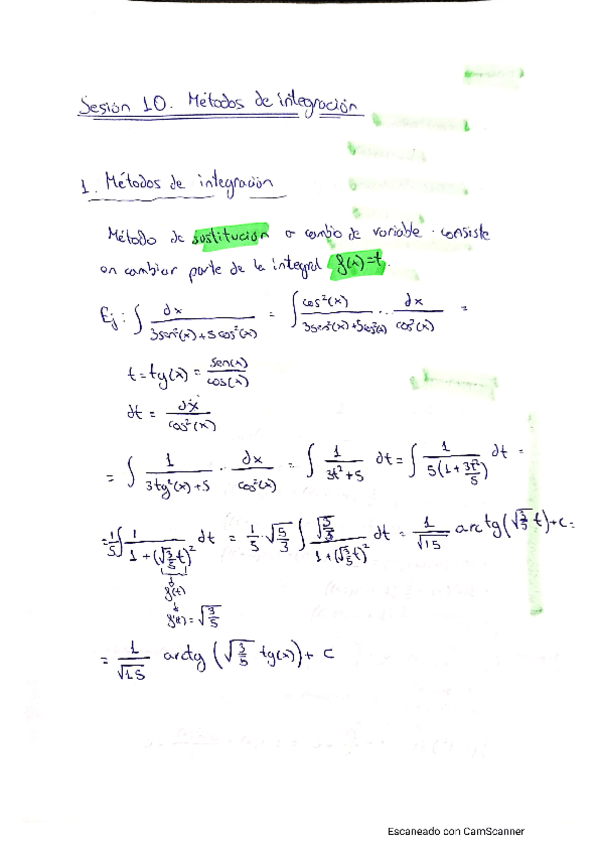 Sesión 10. Métodos de integración
1. Métodos de integración
Método de sustitución o cambio de variable. consiste
en cambiar parte de la integral f(x)=t.
Ej: ∫ dx / (3sen²(x)+5cos²(x)) = ∫ cos²(x) / (3sen²(x)+5cos²(x)) · dx / cos²(x) =
t = tg(x) = sen(x) / cos(x)
dt = dx / cos²(x)
= ∫ 1 / (3tg²(x)+5) · dx / cos²(x) = ∫ 1 / (3t²+5) dt = ∫ 1 / (5(1+3t²/5)) dt =
= 1/5 ∫ 1 / (1+(√(3/5) t)²) dt = 1/5 · √(5/3) ∫ √(3/5) / (1+(√(3/5) t)²) dt = 1/√15 arctg(√(3/5) t)+c =
f(t)
f'(t) = √(3/5)
= 1/√15 arctg (√(3/5) tg(x)) + c
Escaneado con CamScanner